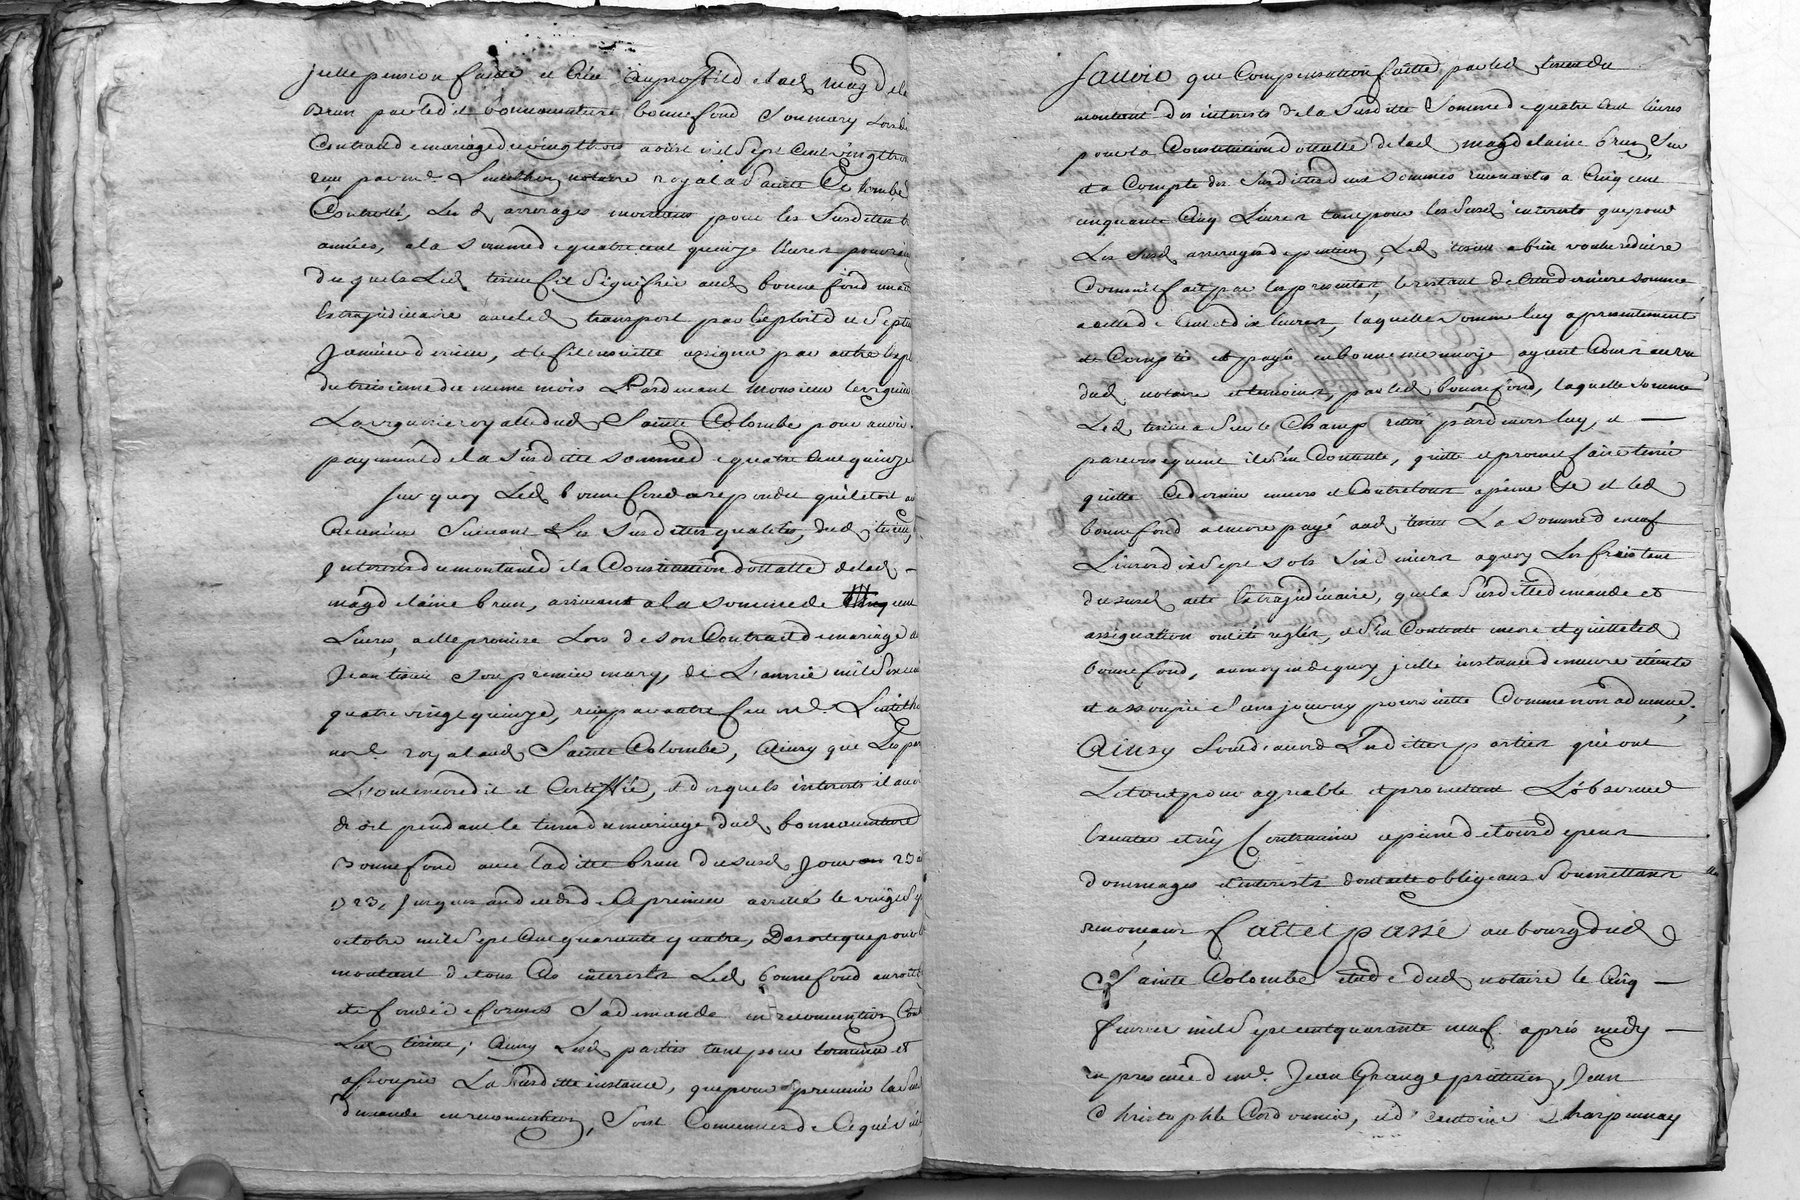 jcelle pension faitte et créée au proffit de lad. magdelaine
Brun par led. bonnaventure bonnefond son mary lors du
Contract de mariage du vingt trois aoust mil sept cent vingt trois
receu par me. notaire royal a Sainte Colombe
Controllé, les d. arrerages montans pour les susdittes
années, a la somme de quatre cent quinze livres pour raison
de quels led. tixier fit signifier aud. bonnefond un acte
extrajudiciaire avec led. transport par exploit du sept
Janvier dernier, et le fit ensuitte assigner par autre exploit
du treisieme du meme mois Pardevant Monsieur
La royalle dud. Sainte Colombe pour avoir
payement de la susditte somme de quatre cent quinze
Sur quoy led. bonnefond a repondu qu'il etoit
Creancier suivant les susdittes qualités, dud. tixier,
Interests du montant de la Constitution dottalle de lad.
magdelaine brun, arrivant a la somme de cent
Livres, a elle promise lors de son Contract de mariage
Jean tixier son premier mary, de L'année mil six cent
quatre vingt quinze, receu par autre feu me.
not. royal aud. Sainte Colombe, ainsy que les parties
L'ont encore dit et Certiffié, et desquels interests il avoit
droit pendant le tems du mariage dud. bonnaventure
Bonnefond avec laditte brun du susd. Jour 23
1723, jusques au deceds de Ce premier arrivé le vingt
octobre mil sept cent quarante quatre, De sorte que pour le
montant de tous Ces interests led. bonnefond auroit
eté fondé de former sa demande en reconvention Contre
Led. tixier; ainsy lesd. parties tant pour terminer et
assoupir La susditte instance, que pour prevenir la susd.
demande en reconvention, Sont Convenues de Ce qui suit
Savoir que Compensation faitte par led. tixier du
montant des interests de la susditte somme de quatre cent livres
pour la Constitution dottalle de lad. magdelaine brun, sur
et a Compte des susdittes deux sommes revenantes a Cinq cent
cinquante Cinq Livres tant pour les susd. interests que pour
Les susd. arrerages de pension, Led. tixier a bien voulu reduire
Comme il fait par les presentes, le restant de Cette derniere somme
a celle de Cent dix livres, laquelle somme luy a presentement
eté Comptée et payée en bonne monnoye ayant Cours au vu
dud. notaire et temoins, par led. bonnefond, laquelle somme
Led. tixier a sur le Champ retiré pardevers luy, et
par consequent il s'en Contente, quitte et promet faire tenir
quitte Ce dernier envers et Contre tous a peine &c et led.
bonnefond a encore payé aud. tixier La somme de neuf
Livres dix sept sols six deniers a quoy Les frais tant
du susd. acte Extrajudiciaire, que la susditte demande et
assignation ont eté reglés, et s'en Contente encore et quitte led.
bonnefond, au moyen de quoy jcelle instance demeure éteinte
et assoupie sans y pouvoir poursuitte Comme non advenue;
Ainsy sont d'accord Lesdittes parties qui ont
Le tout pour agreable et promettent L'observer
Executer et n'y Contrevenir a peine de tous depens
dommages et interests dont acte obligeans Soumettans
renonçans fait et passé au bourg dud.
Sainte Colombe etude dud. notaire le Cinq
fevrier mil sept cent quarante neuf apres midy
en presence de me. Jean Grange praticien, Jean
Christophle Cordonnier, et d'antoine Charpenay